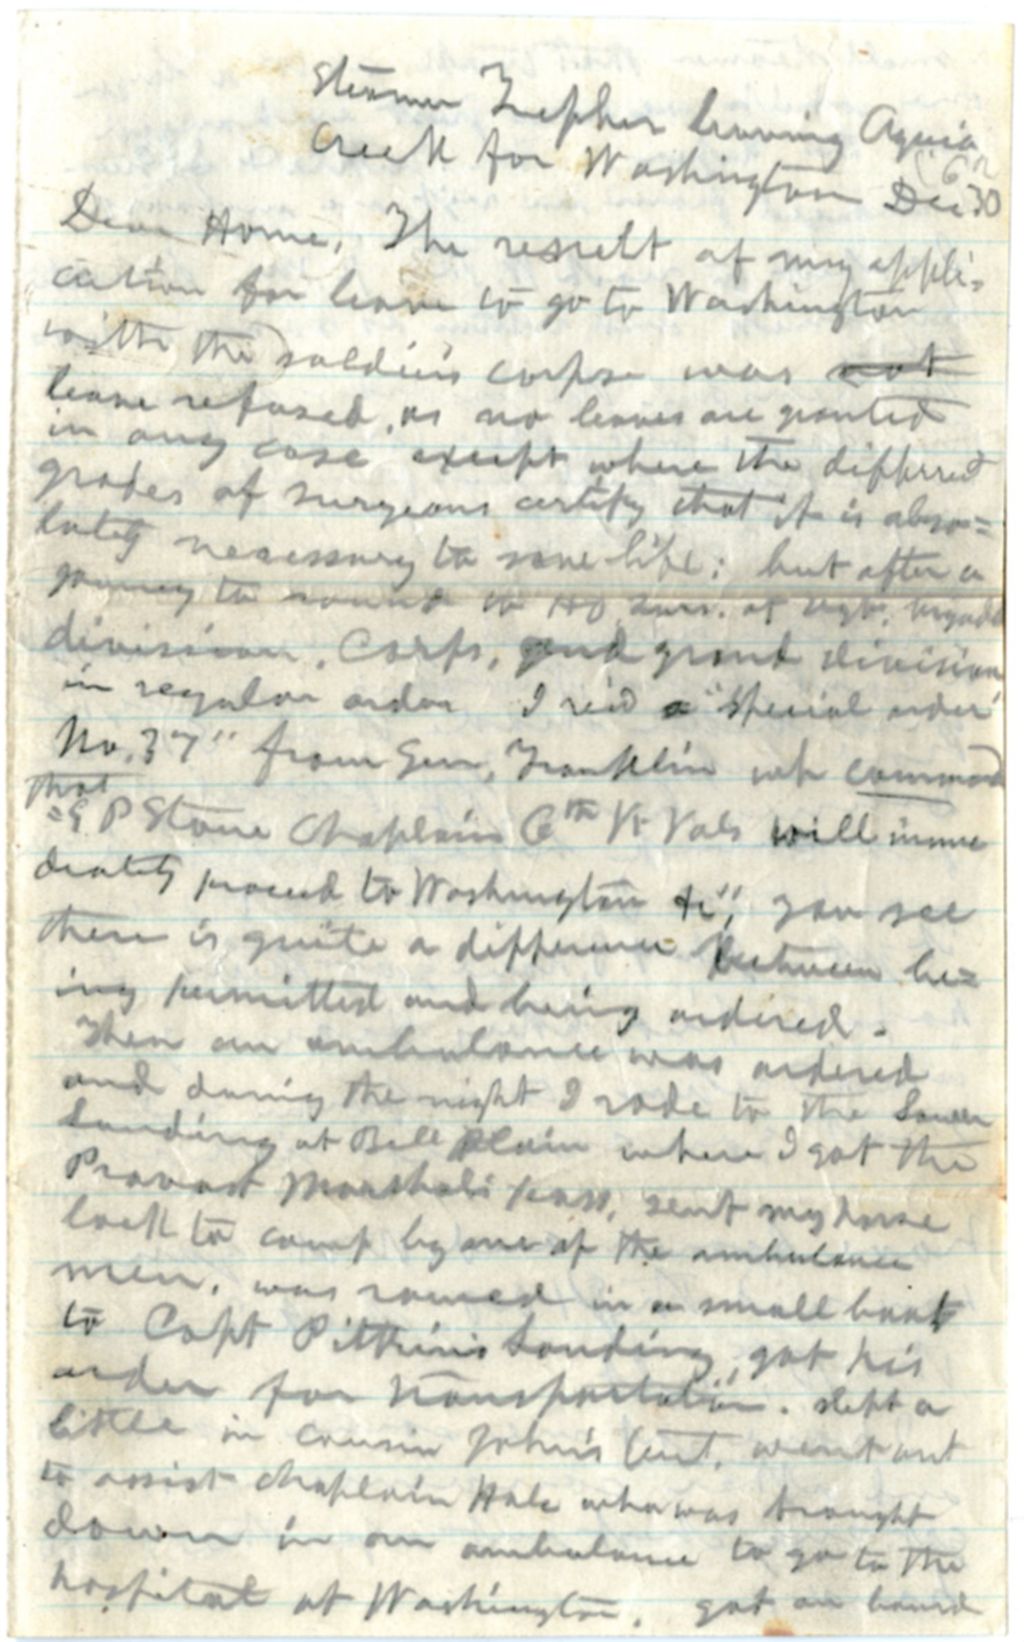 Steamer Zephyr leaving Aquia
Creek for Washington Dec 30
Dear Home, The result of my appli-
cation for leave to go to Washington
with the soldiers corpse was not
leave refused, as no leaves are granted
in any case except where the different
grades of surgeons certify that it is abso=
lutely necessary to save life; but after a
journey to round to HdQurs. of regt, brigade
division, Corps, and grand division
in regular order I rec'd a "special order
No. 37" from Gen, Franklin wh command
that
"E P Stone Chaplain 6th Vt Vols will imme
diately proceed to Washington &c", you see
there is quite a difference between be=
ing permitted and being ordered.
Then an ambulance was ordered
and during the night I rode to the Lower
Landing at Bell Plain where I got the
Provost Marshals pass, sent my horse
back to camp by one of the ambulance
men, was rowed in a small boat
to Capt Pitkin's Landing, got his
order for transportation. slept a
little in cousin John's tent, went out
to assist chaplain Hale who was brought
down in an ambulance to go to the
hospital at Washington. got on board